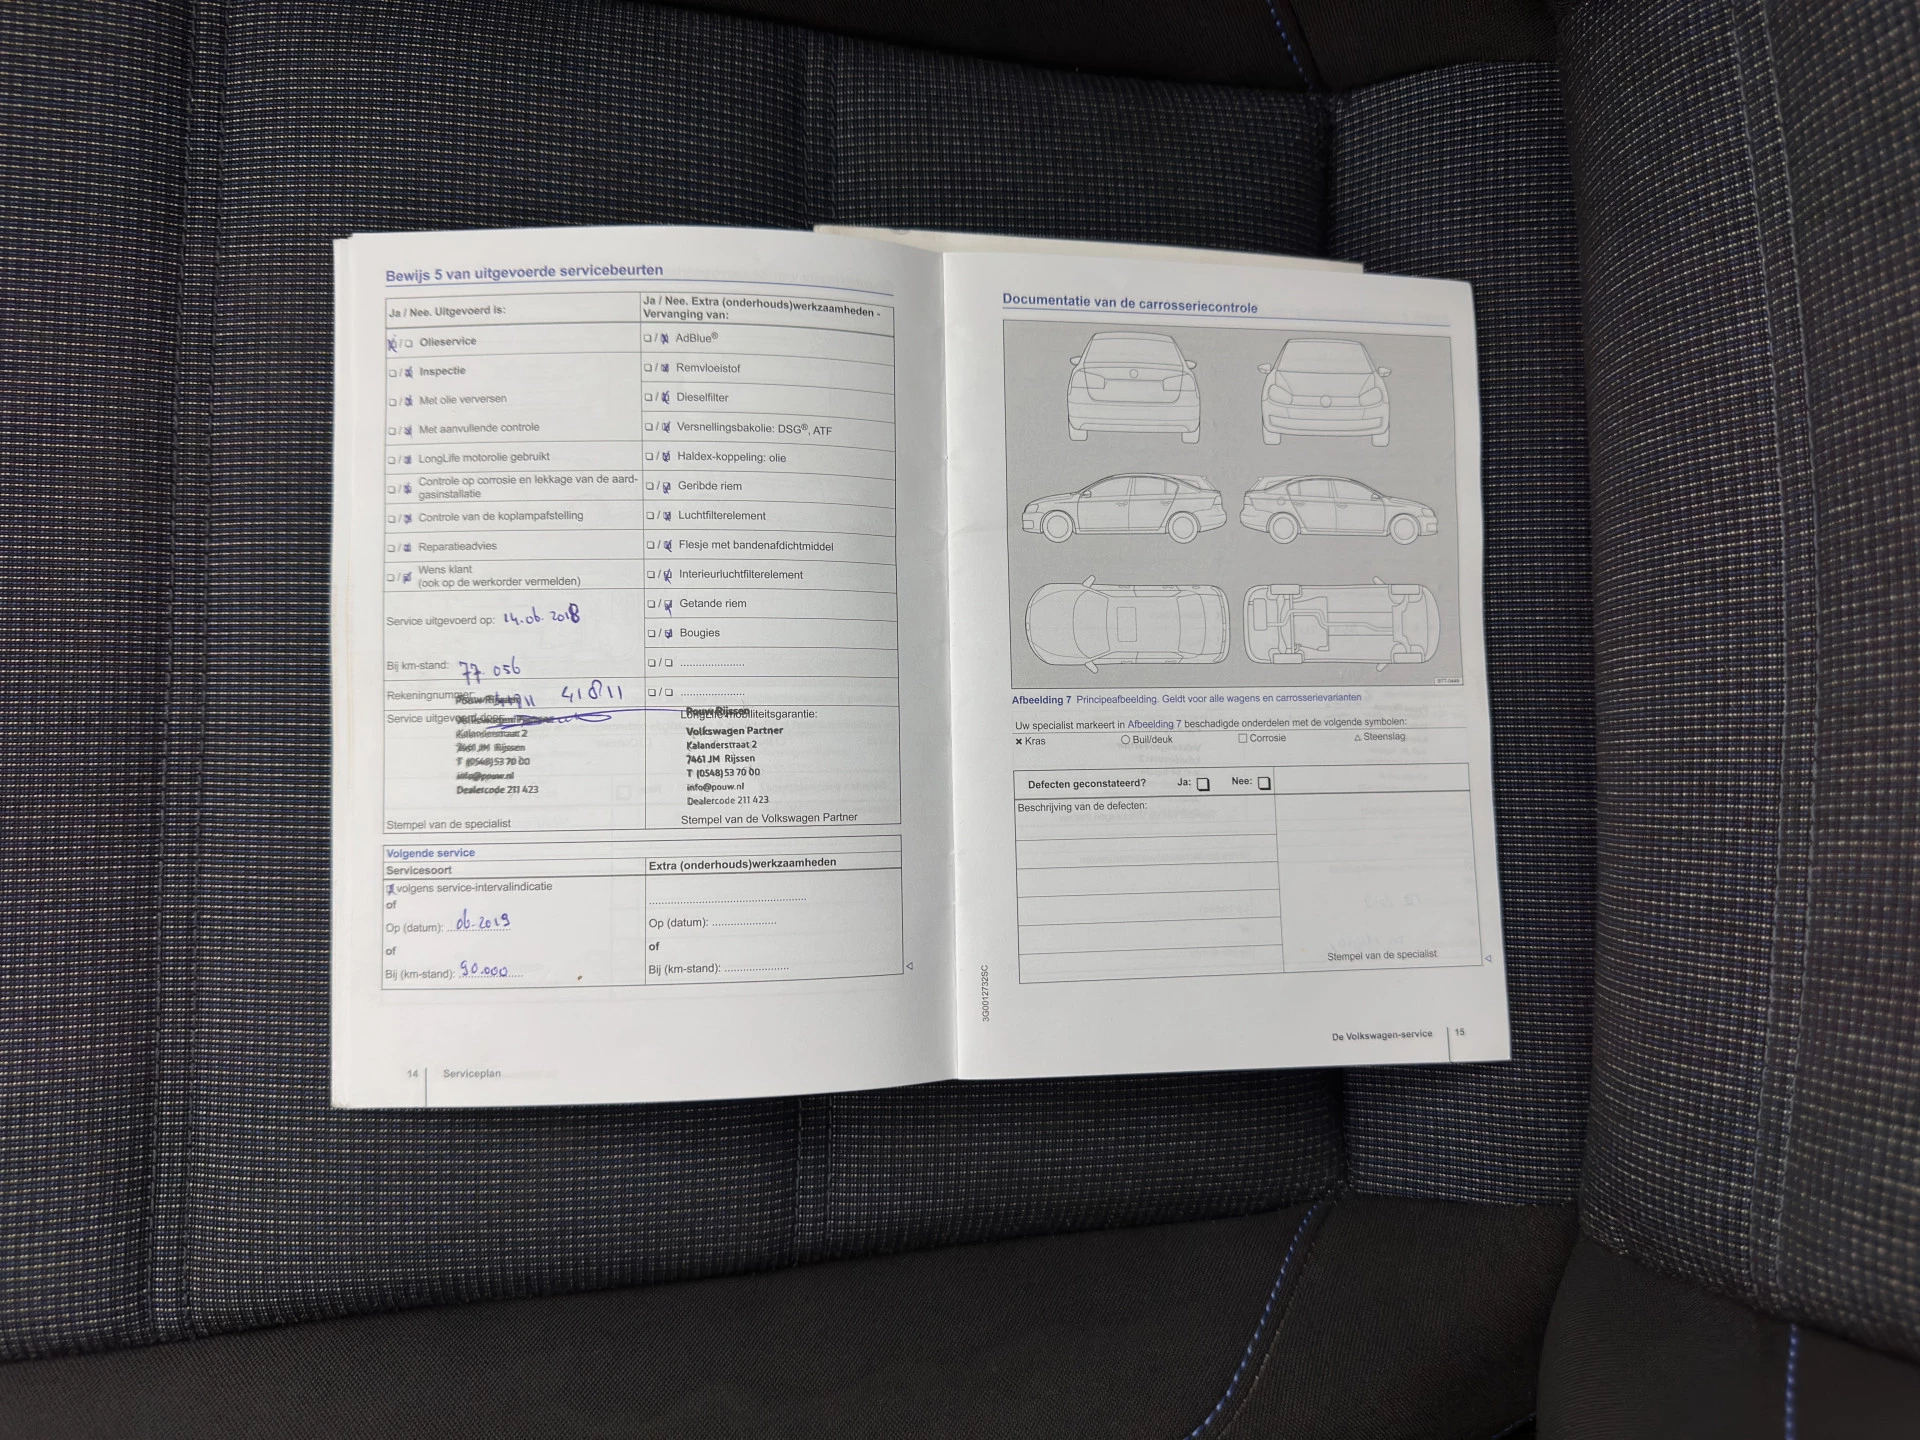 Bewijs 5 van uitgevoerde servicebeurten
Ja / Nee. Uitgevoerd is:
Olieservice
Inspectie
Met olie verversen
Met aanvullende controle
LongLife motorolie gebruikt
Controle op corrosie en lekkage van de aard-
gasinstallatie
Controle van de koplampafstelling
Reparatieadvies
Wens klant
(ook op de werkorder vermelden)
Service uitgevoerd op: 14.06.2018
Bij km-stand: 77.056
Rekeningnummer: 41811
Service uitgevoerd door:
Pouw Rijssen
Volkswagen Partner
Kalanderstraat 2
7461 JM Rijssen
T (0548) 53 70 00
info@pouw.nl
Dealercode 211 423
Stempel van de specialist
Ja / Nee. Extra (onderhouds)werkzaamheden -
Vervanging van:
AdBlue®
Remvloeistof
Dieselfilter
Versnellingsbakolie: DSG®, ATF
Haldex-koppeling: olie
Geribde riem
Luchtfilterelement
Flesje met bandenafdichtmiddel
Interieurluchtfilterelement
Getande riem
Bougies
LongLife mobiliteitsgarantie:
Pouw Rijssen
Volkswagen Partner
Kalanderstraat 2
7461 JM Rijssen
T (0548) 53 70 00
info@pouw.nl
Dealercode 211 423
Stempel van de Volkswagen Partner
Volgende service
Servicesoort
volgens service-intervalindicatie
of
Op (datum): 06-2019
of
Bij (km-stand): 90.000
Extra (onderhouds)werkzaamheden
Op (datum): ....................
of
Bij (km-stand): ....................
14 Serviceplan
Documentatie van de carrosseriecontrole
Afbeelding 7 Principeafbeelding. Geldt voor alle wagens en carrosserievarianten
Uw specialist markeert in Afbeelding 7 beschadigde onderdelen met de volgende symbolen:
× Kras ○ Buil/deuk □ Corrosie △ Steenslag
Defecten geconstateerd? Ja: Nee:
Beschrijving van de defecten:
Stempel van de specialist
3G0012732SC
De Volkswagen-service 15